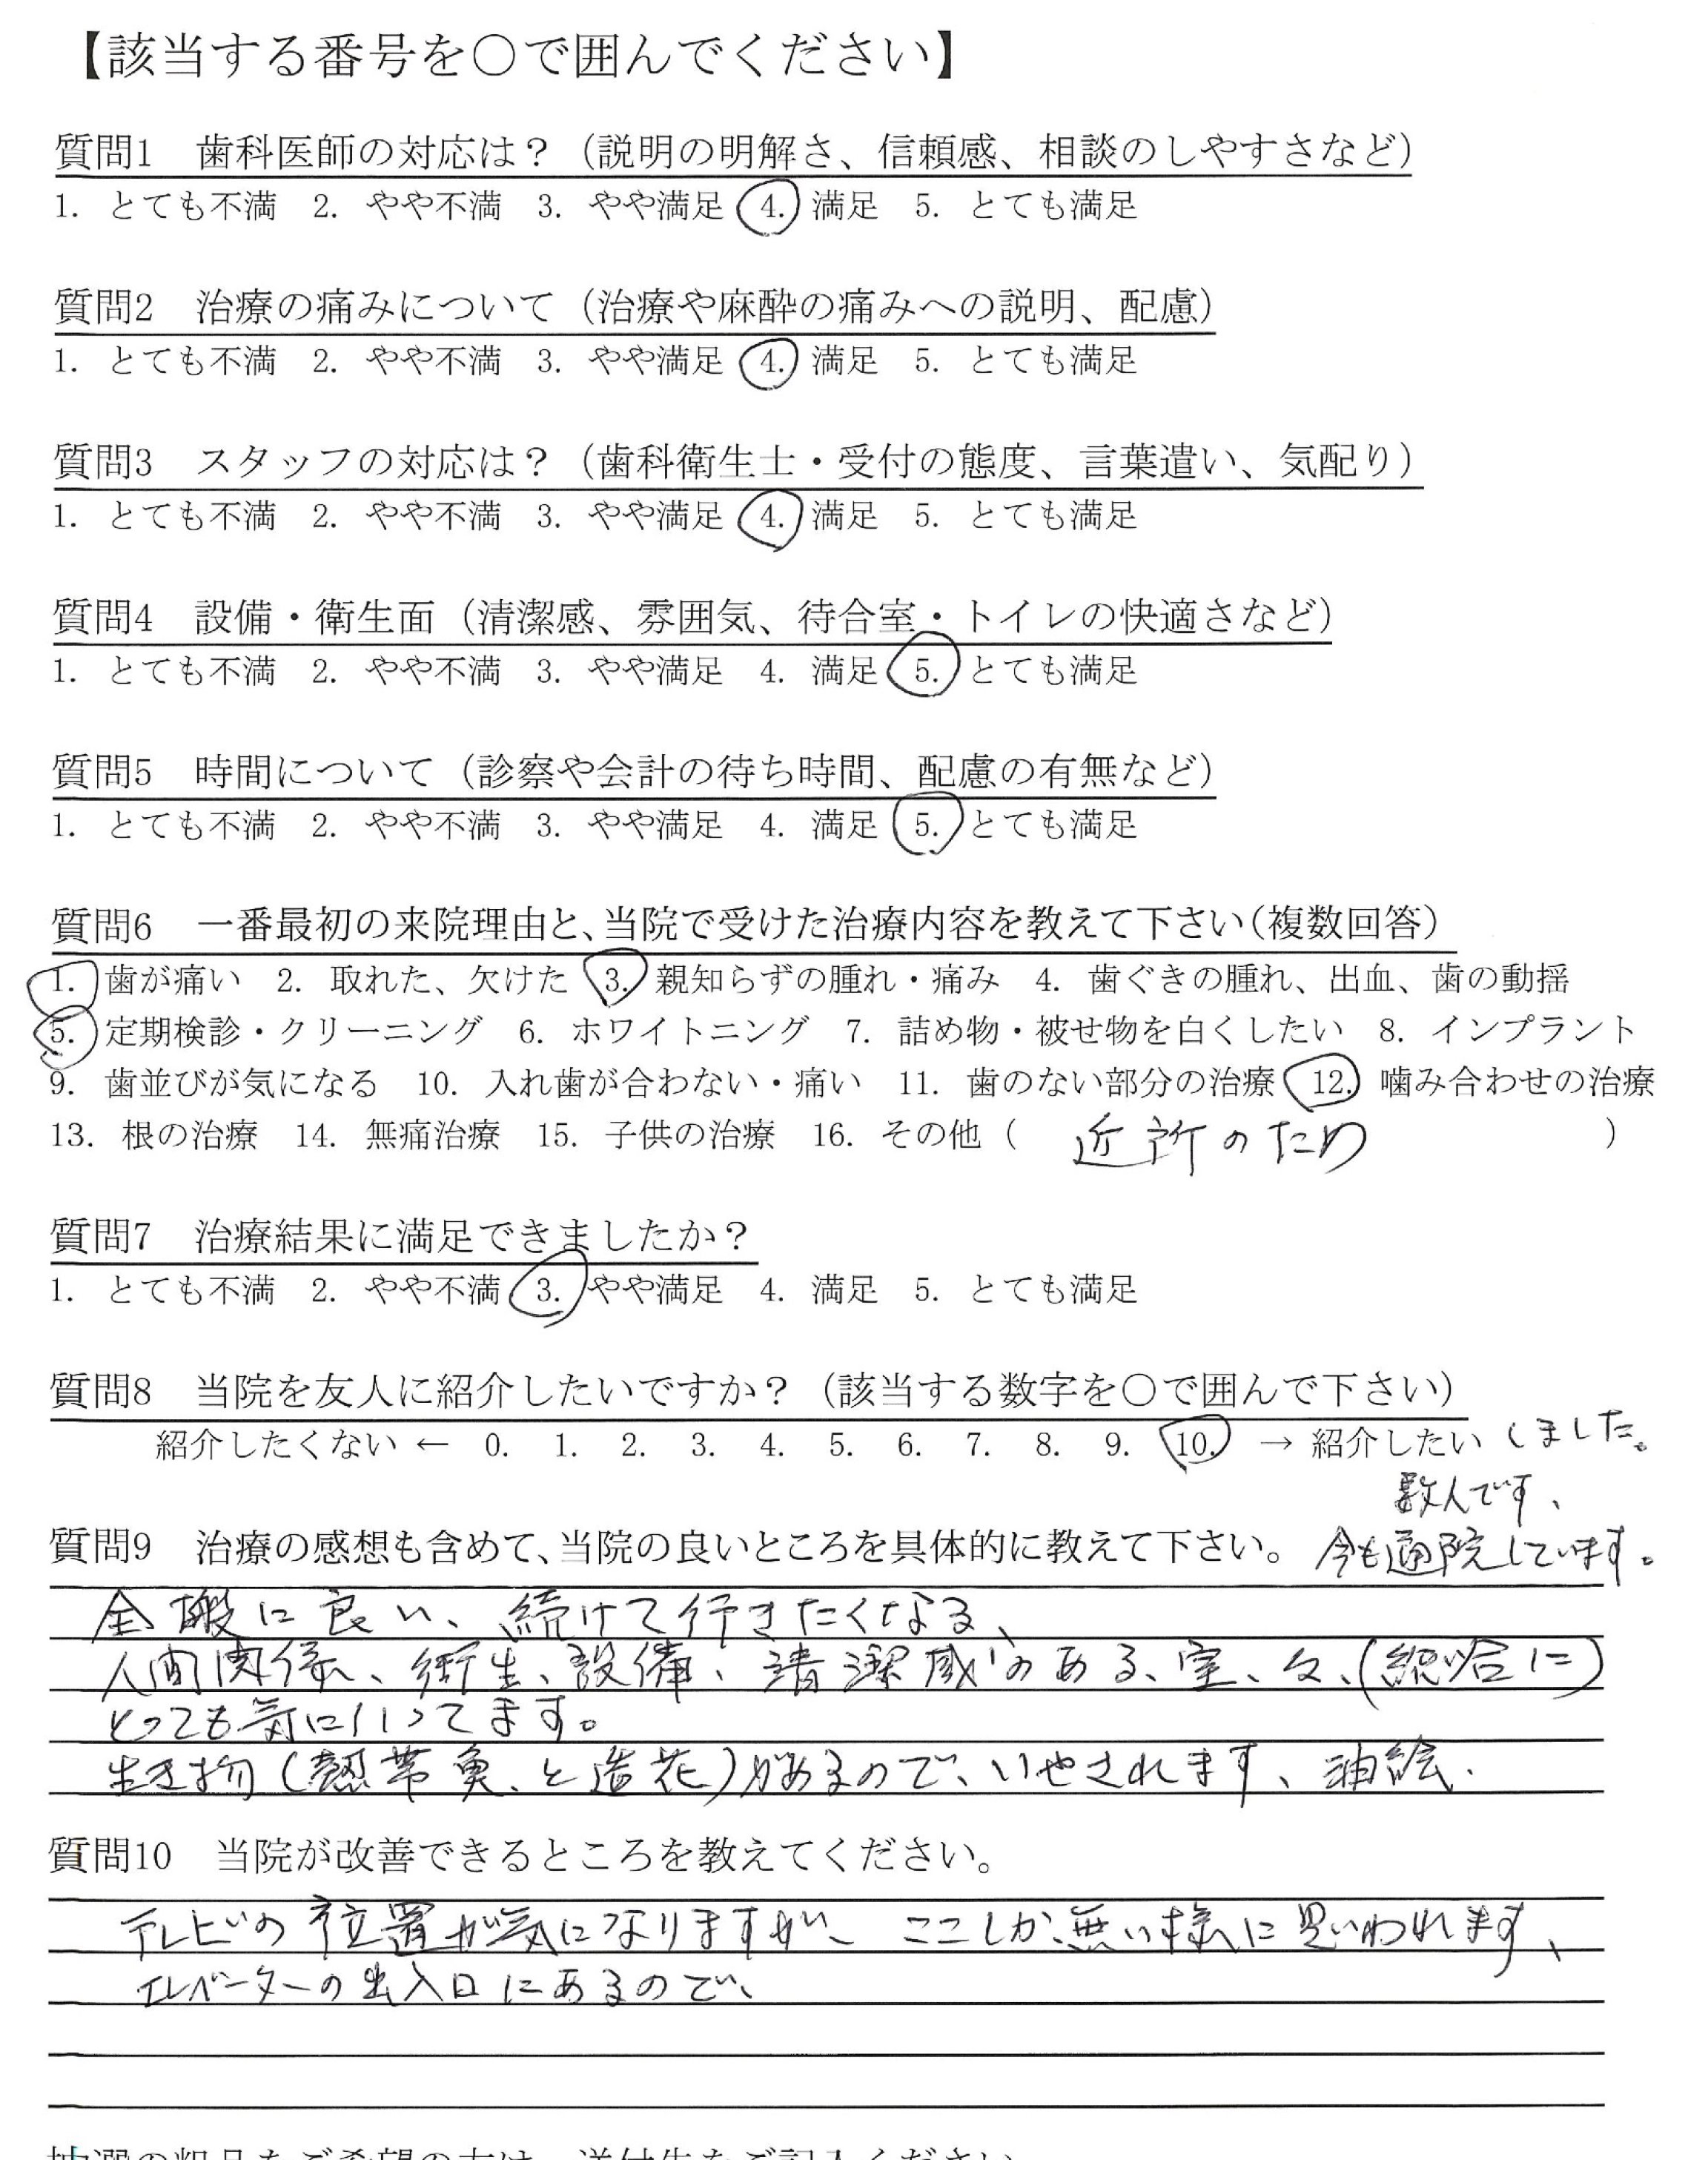 【該当する番号を○で囲んでください】
質問1　歯科医師の対応は？（説明の明解さ、信頼感、相談のしやすさなど）
1. とても不満　2. やや不満　3. やや満足　4. 満足　5. とても満足
質問2　治療の痛みについて（治療や麻酔の痛みへの説明、配慮）
1. とても不満　2. やや不満　3. やや満足　4. 満足　5. とても満足
質問3　スタッフの対応は？（歯科衛生士・受付の態度、言葉遣い、気配り）
1. とても不満　2. やや不満　3. やや満足　4. 満足　5. とても満足
質問4　設備・衛生面（清潔感、雰囲気、待合室・トイレの快適さなど）
1. とても不満　2. やや不満　3. やや満足　4. 満足　5. とても満足
質問5　時間について（診察や会計の待ち時間、配慮の有無など）
1. とても不満　2. やや不満　3. やや満足　4. 満足　5. とても満足
質問6　一番最初の来院理由と、当院で受けた治療内容を教えて下さい（複数回答）
1. 歯が痛い　2. 取れた、欠けた　3. 親知らずの腫れ・痛み　4. 歯ぐきの腫れ、出血、歯の動揺
5. 定期検診・クリーニング　6. ホワイトニング　7. 詰め物・被せ物を白くしたい　8. インプラント
9. 歯並びが気になる　10. 入れ歯が合わない・痛い　11. 歯のない部分の治療　12. 噛み合わせの治療
13. 根の治療　14. 無痛治療　15. 子供の治療　16. その他（　近所のため　）
質問7　治療結果に満足できましたか？
1. とても不満　2. やや不満　3. やや満足　4. 満足　5. とても満足
質問8　当院を友人に紹介したいですか？（該当する数字を○で囲んで下さい）
紹介したくない ← 0. 1. 2. 3. 4. 5. 6. 7. 8. 9. 10. → 紹介したい しました。
数人です、
質問9　治療の感想も含めて、当院の良いところを具体的に教えて下さい。 今も通院しています。
全般に良い、続けて行きたくなる、
人間関係、衛生、設備、清潔感のある、室、々、(総合に)
とっても気に入ってます。
生き物(熱帯魚、と造花)があるので、いやされます、油絵.
質問10　当院が改善できるところを教えてください。
テレビの位置が気になりますが、ここしか無い様に思いわれます、
エレベーターの出入口にあるので、